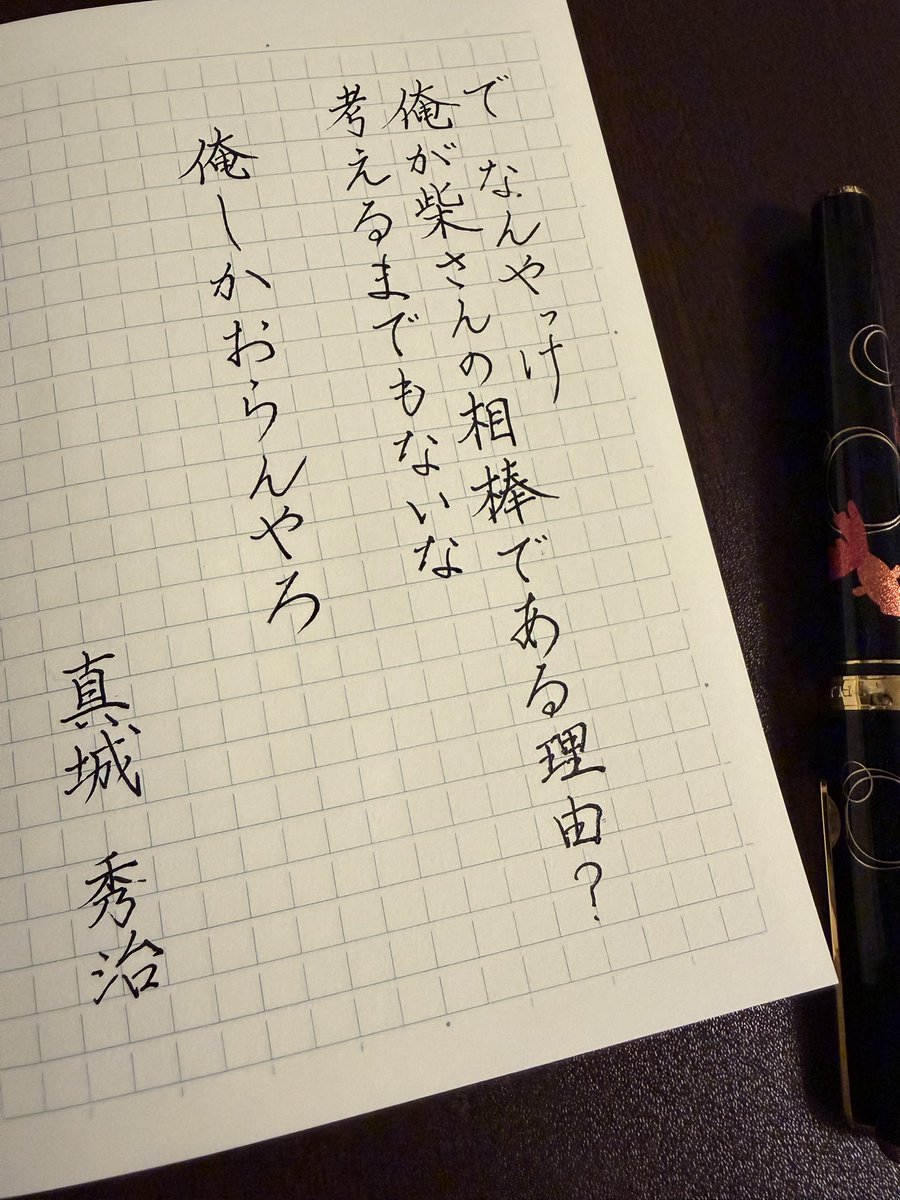 で なんやっけ
俺が柴さんの相棒である理由?
考えるまでもないな
俺しかおらんやろ
真城 秀治